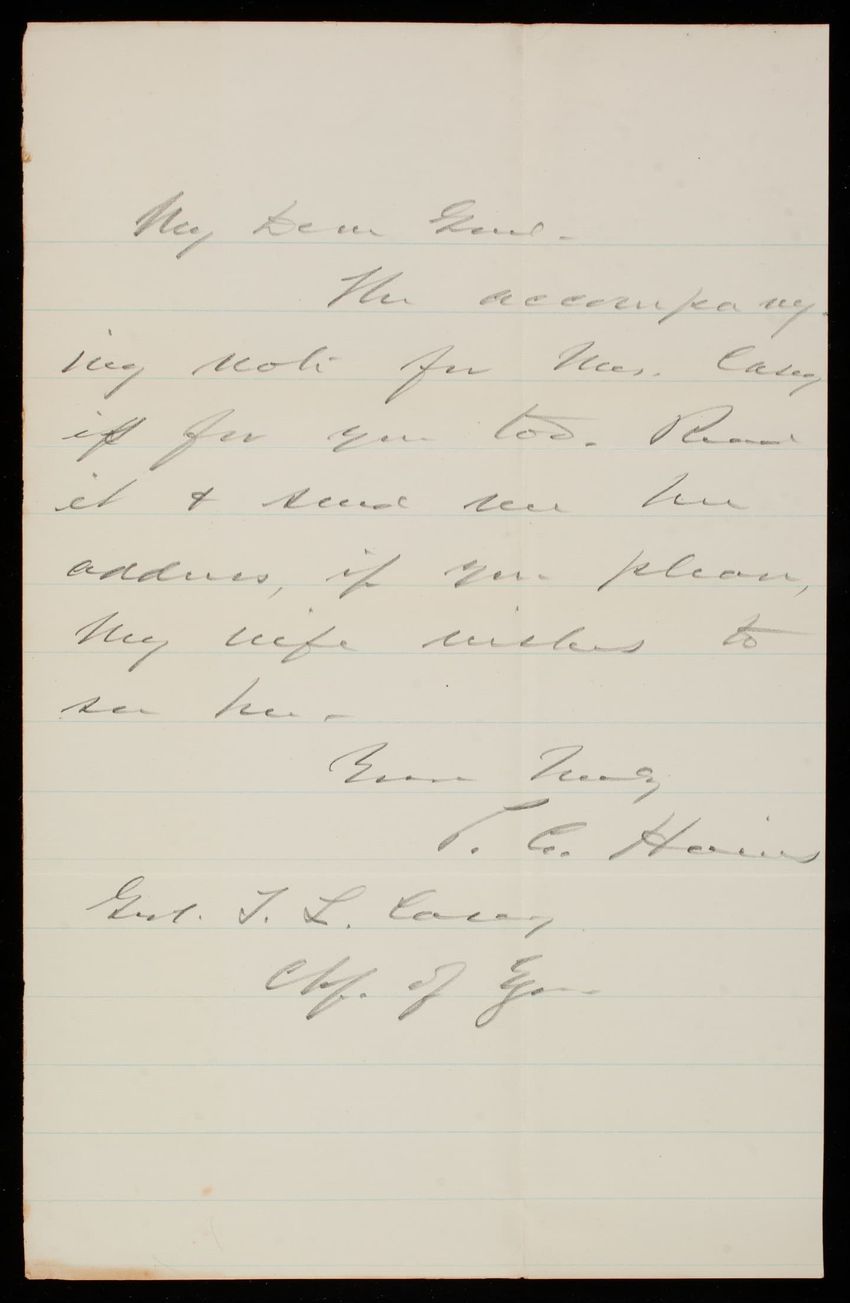 My Dear Genl-
The accompany-
ing note for Mrs. Casey
is for you too. Read
it & send me her
address, if you please,
My wife wishes to
see her-
Yours Truly
P. C. Hains
Genl. T. L. Casey
Chf. of Engrs